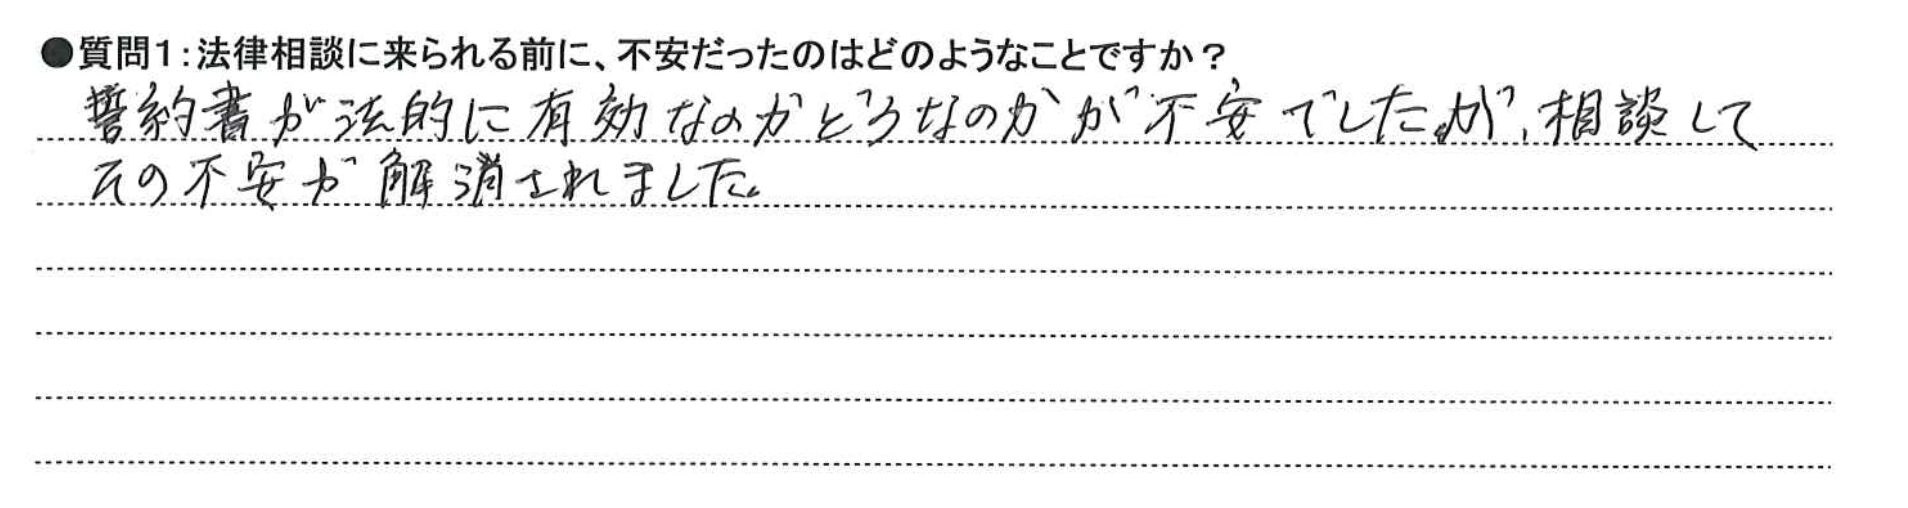 ●質問1:法律相談に来られる前に、不安だったのはどのようなことですか？
誓約書が法的に有効なのかどうなのかが不安でしたが、相談して
その不安が解消されました。